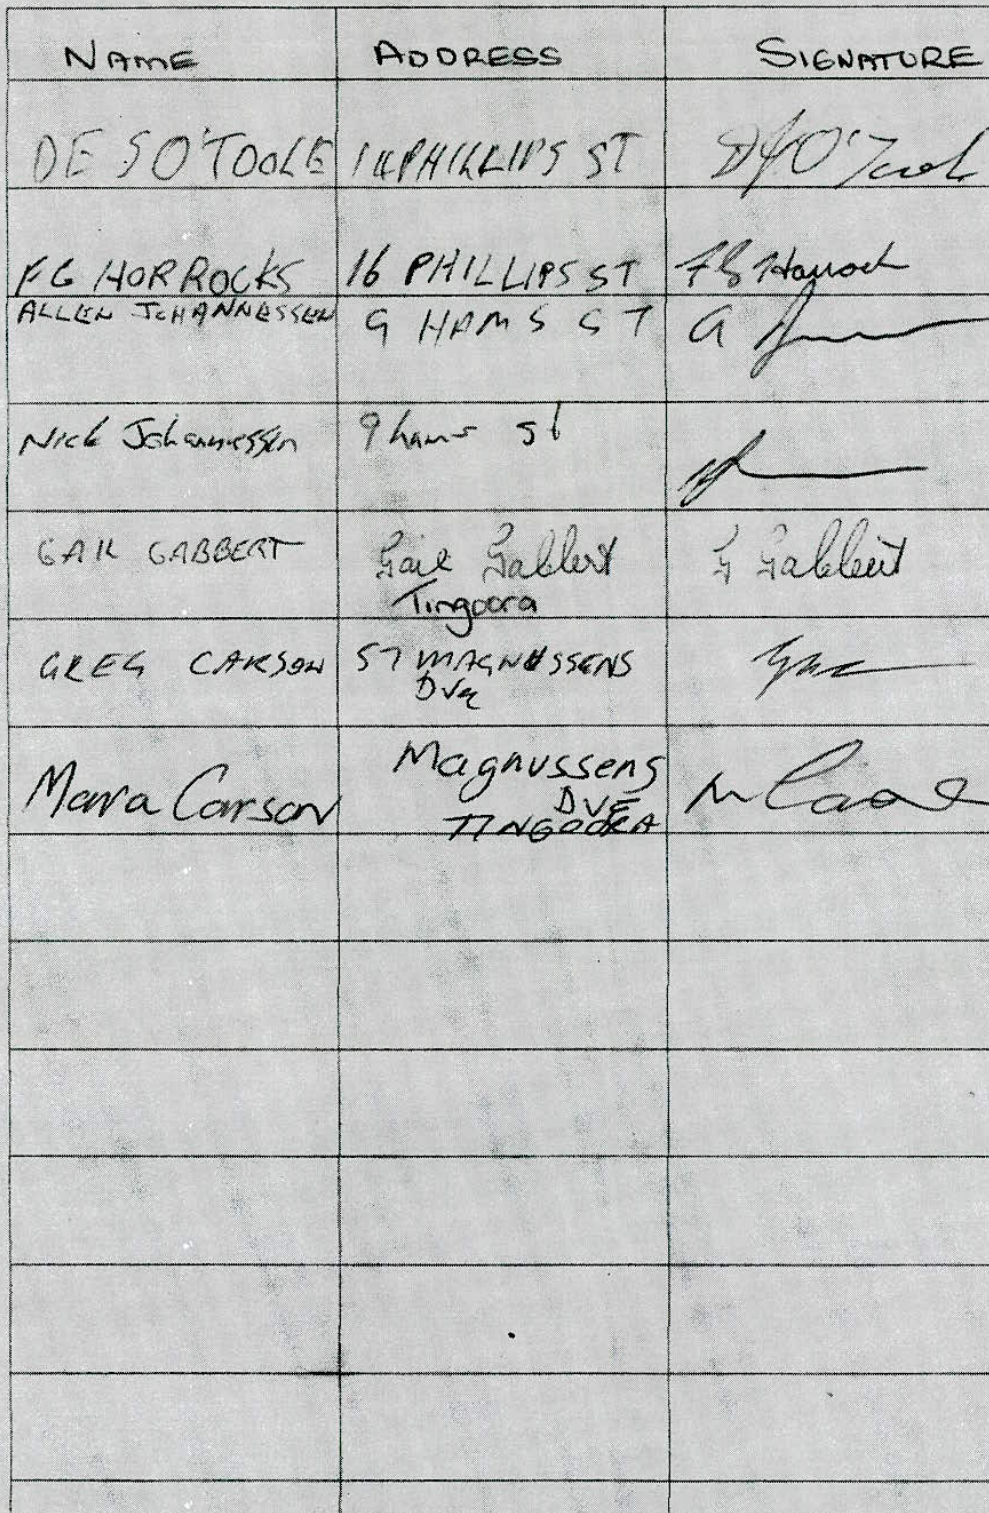 NAME ADDRESS SIGNATURE
DES O'TOOLE PHILLIPS ST O'Toole
FG HORROCKS 16 PHILLIPS ST FG Horrock
ALLEN JOHANNESSEN 9 HAMS ST A
Nick Johannessen 9 hams st
GAIL GABBERT Gail Gabbert G Gabbert
Tingoora
GREG CARSON 57 MAGNUSSENS
DVE
Mara Carson Magnussens M
DVE
TINGOORA